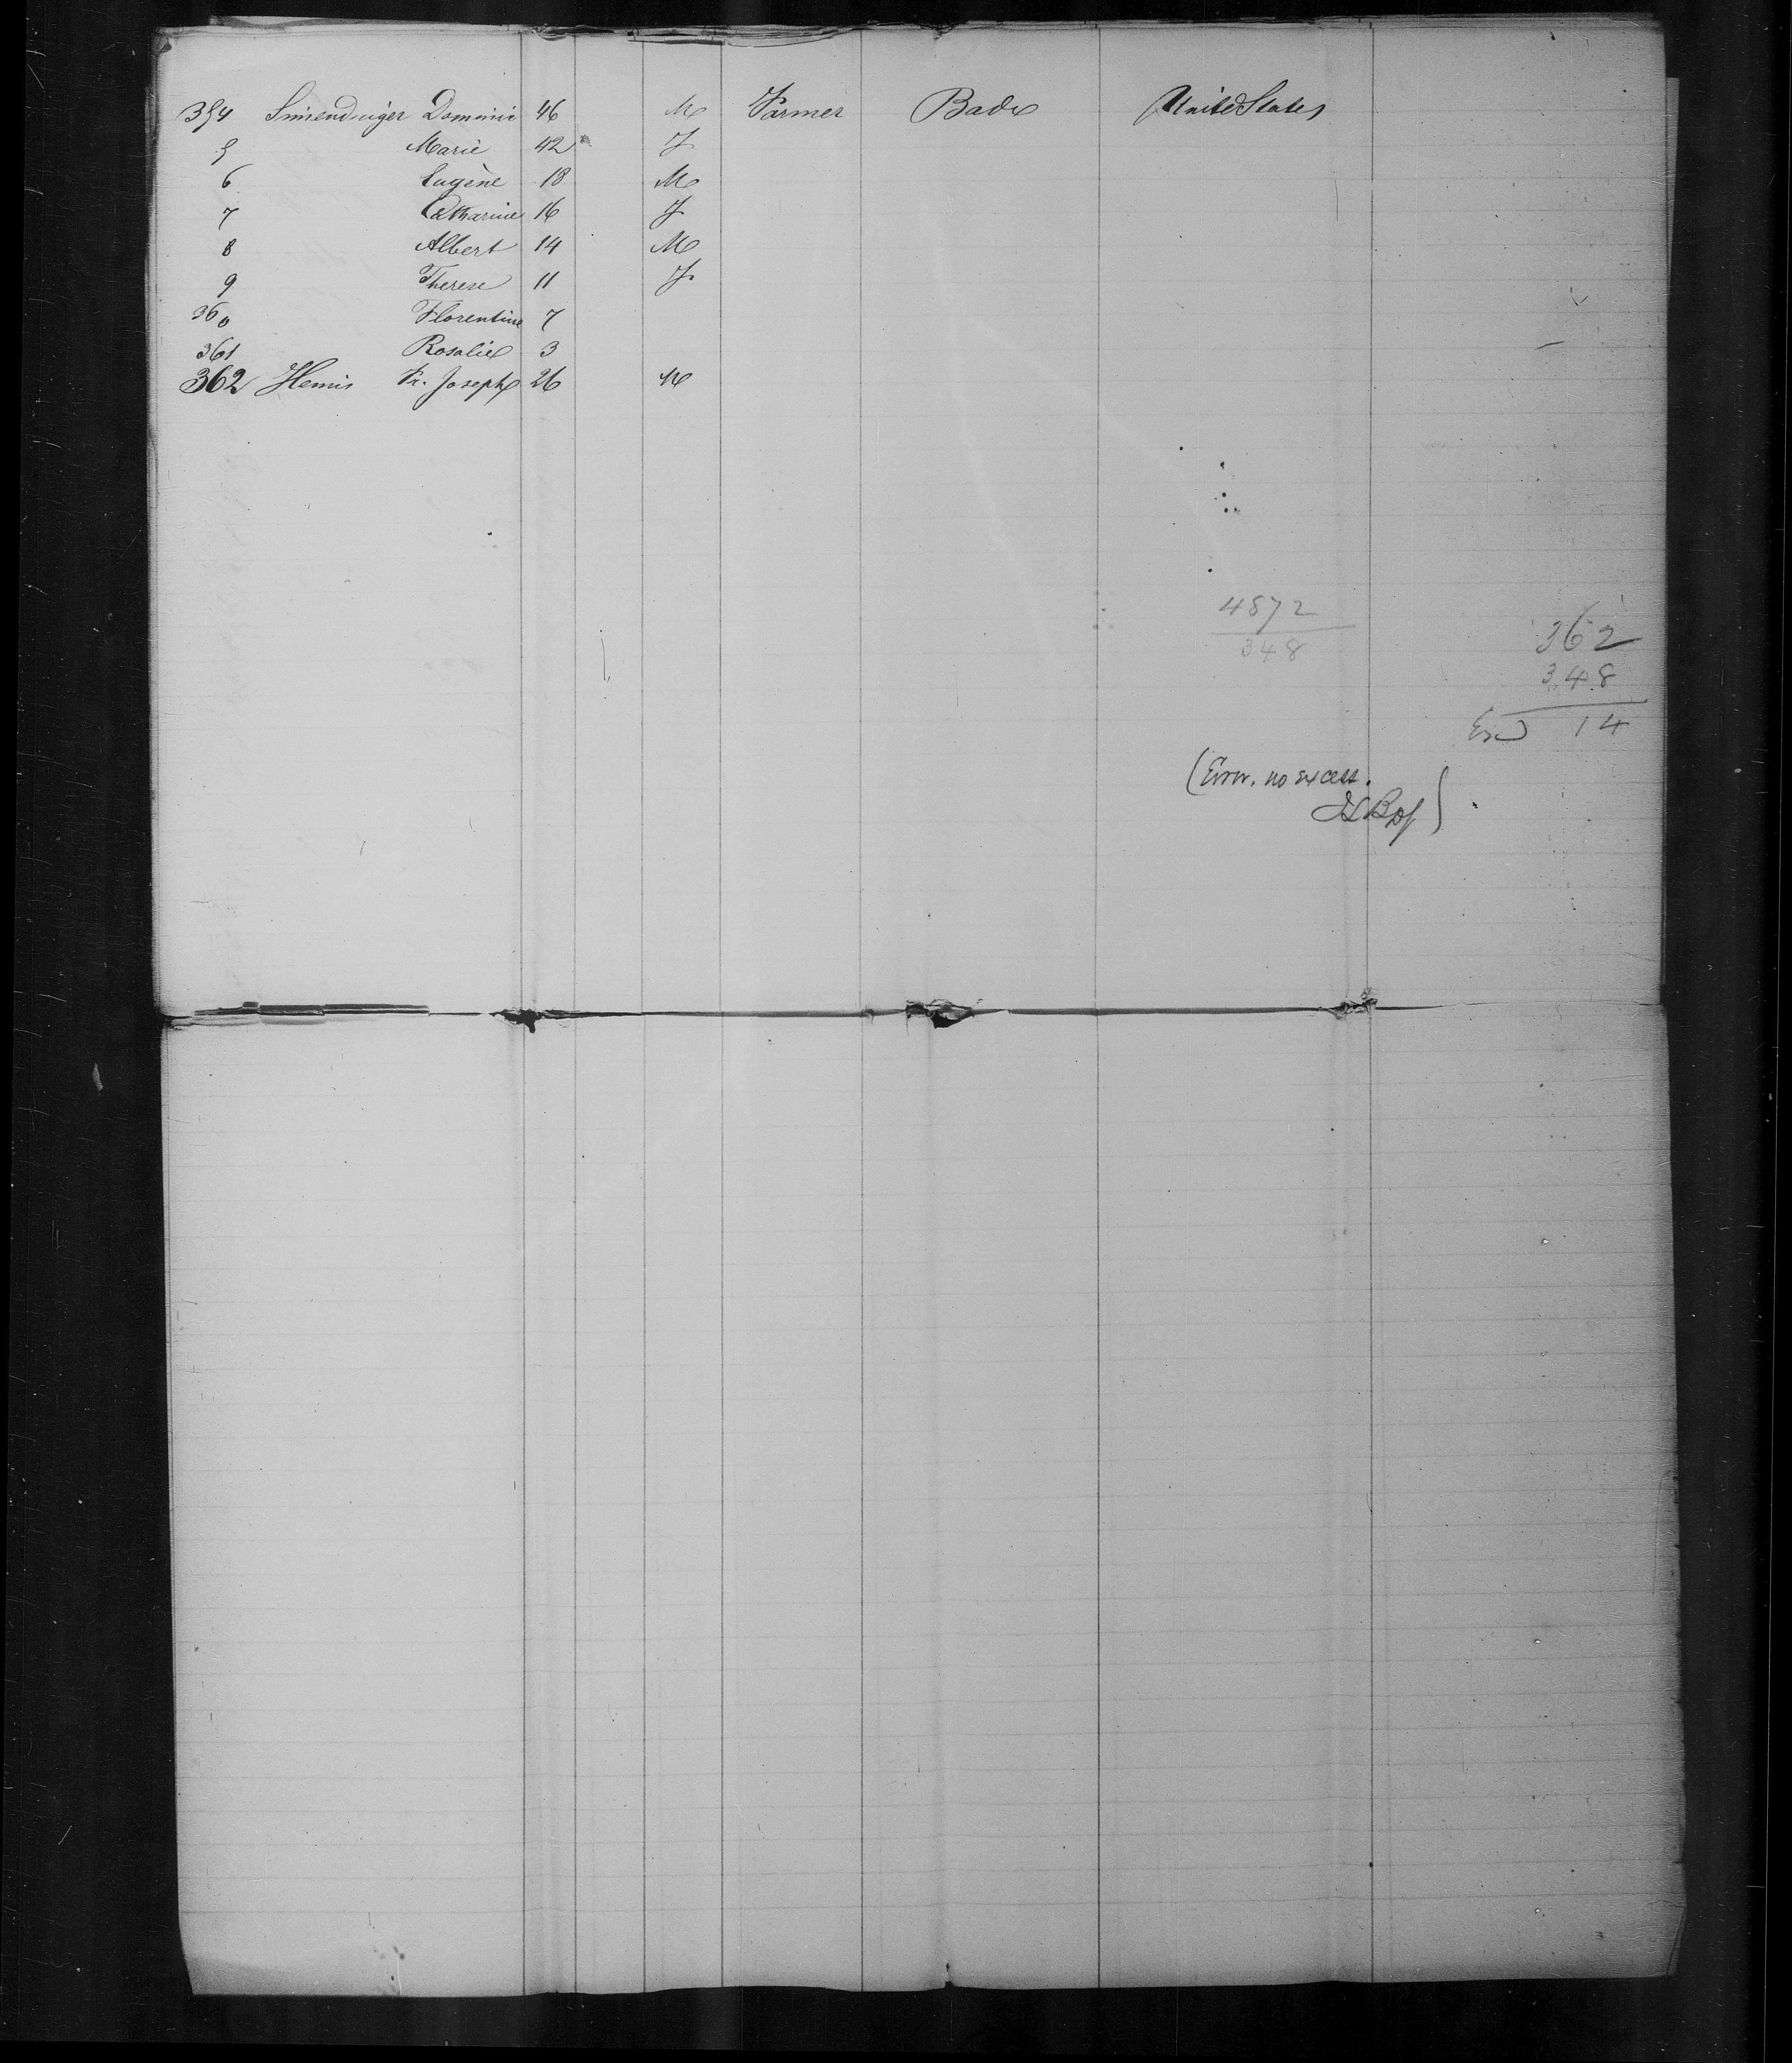 354 Simendinger Dominic 46 M Farmer Bade United States
5 Marie 42 F
6 Eugène 18 M
7 Catharine 16 F
8 Albert 14 M
9 Therese 11 F
360 Florentine 7
361 Rosalie 3
362 Hemis Fr. Joseph 26 M
4872
348
362
348
14
(Error. no excess.